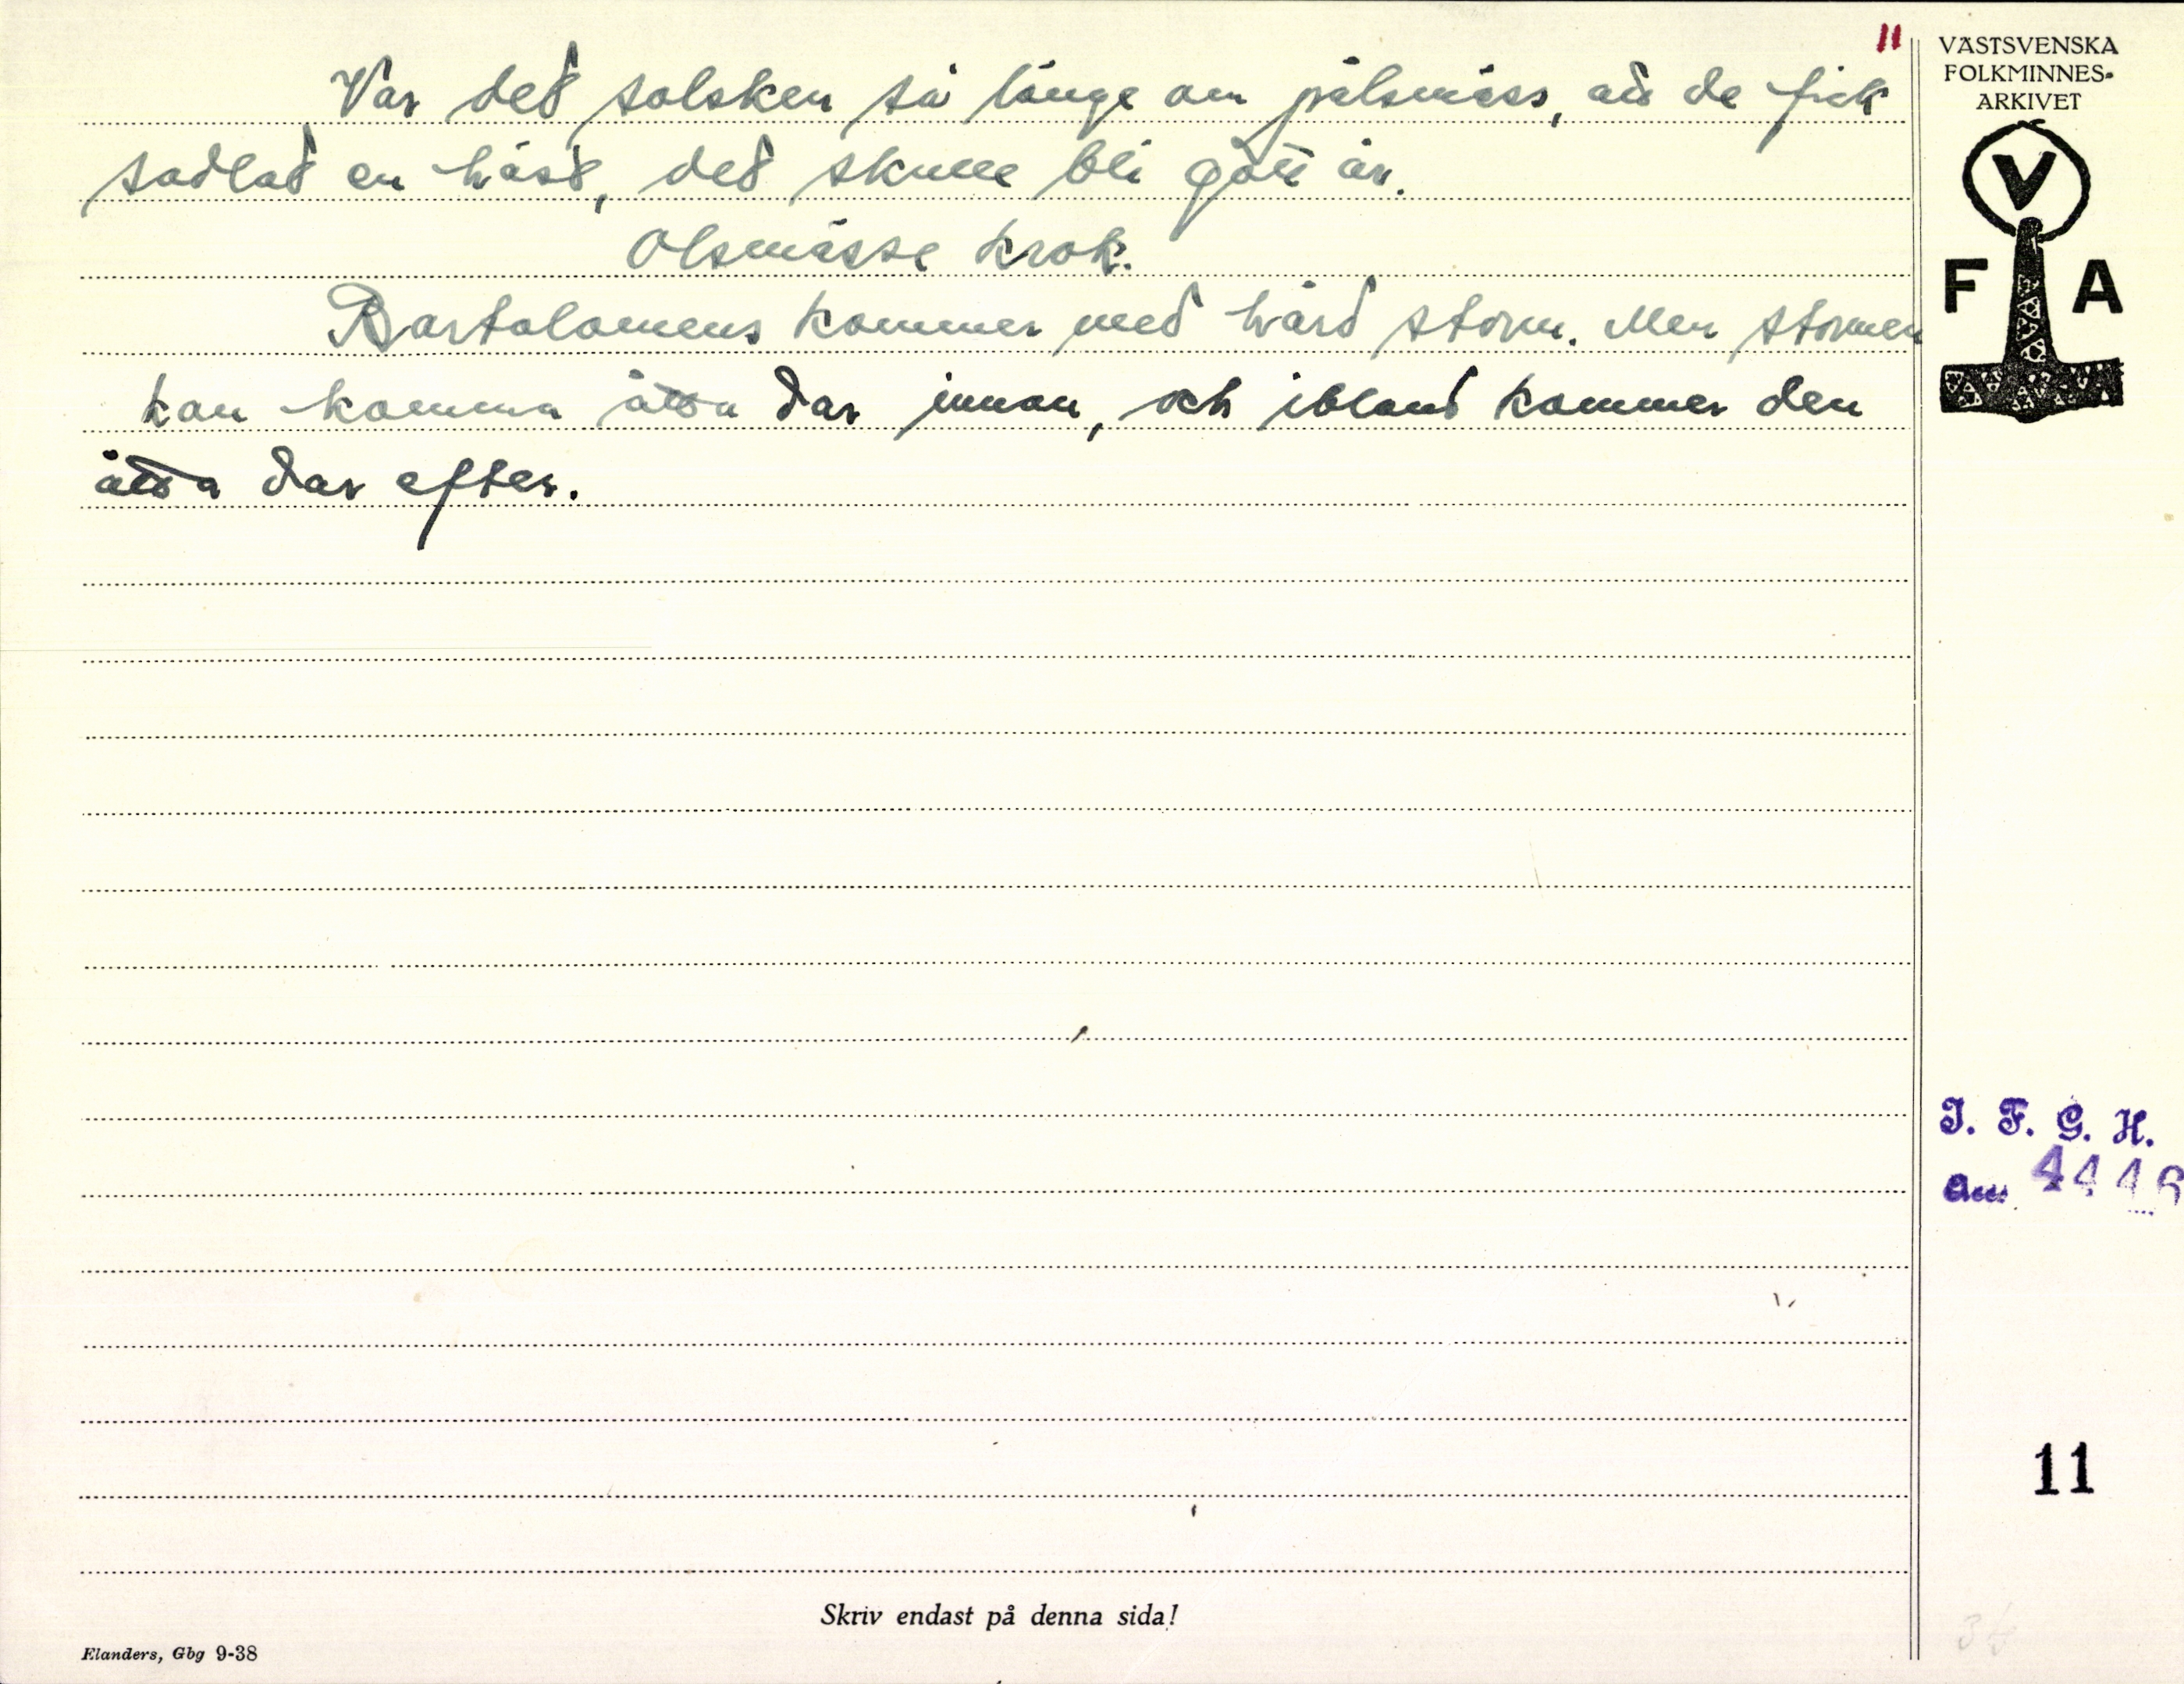 11
Var det solsken så länge om pålsmäss, att de fick
sadlat en häst, det skulle bli gott år.
Olsmässe krok.
Bartolomeus kommer med hård storm. Men stormen
kan komma åtta dar innan, och ibland kommer den
åtta dar efter.
VÄSTSVENSKA
FOLKMINNES-
ARKIVET
V
F A
I. F. G. H.
11
Skriv endast på denna sida!
Elanders, Gbg 9-38